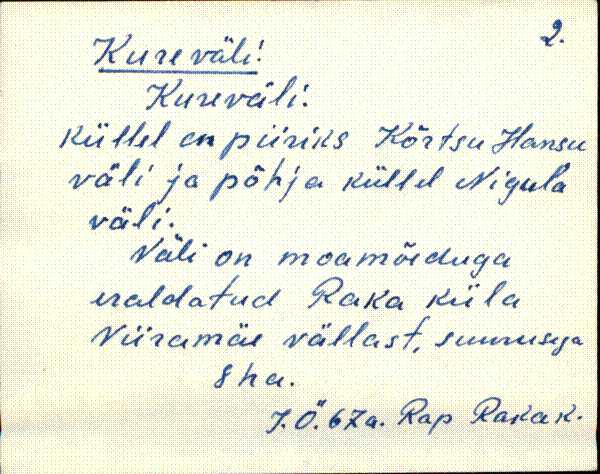 2.
Kureväli.
Kureväli.
küllel on piiriks Kõrtsu Hansu
väli ja põhja küllel Nigula
väli.
Väli on moamõeduga
eraldatud Raka küla
Viiramäe vällast, suurusega
8 ha.
J.Ö. 67a. Rap Raka k.